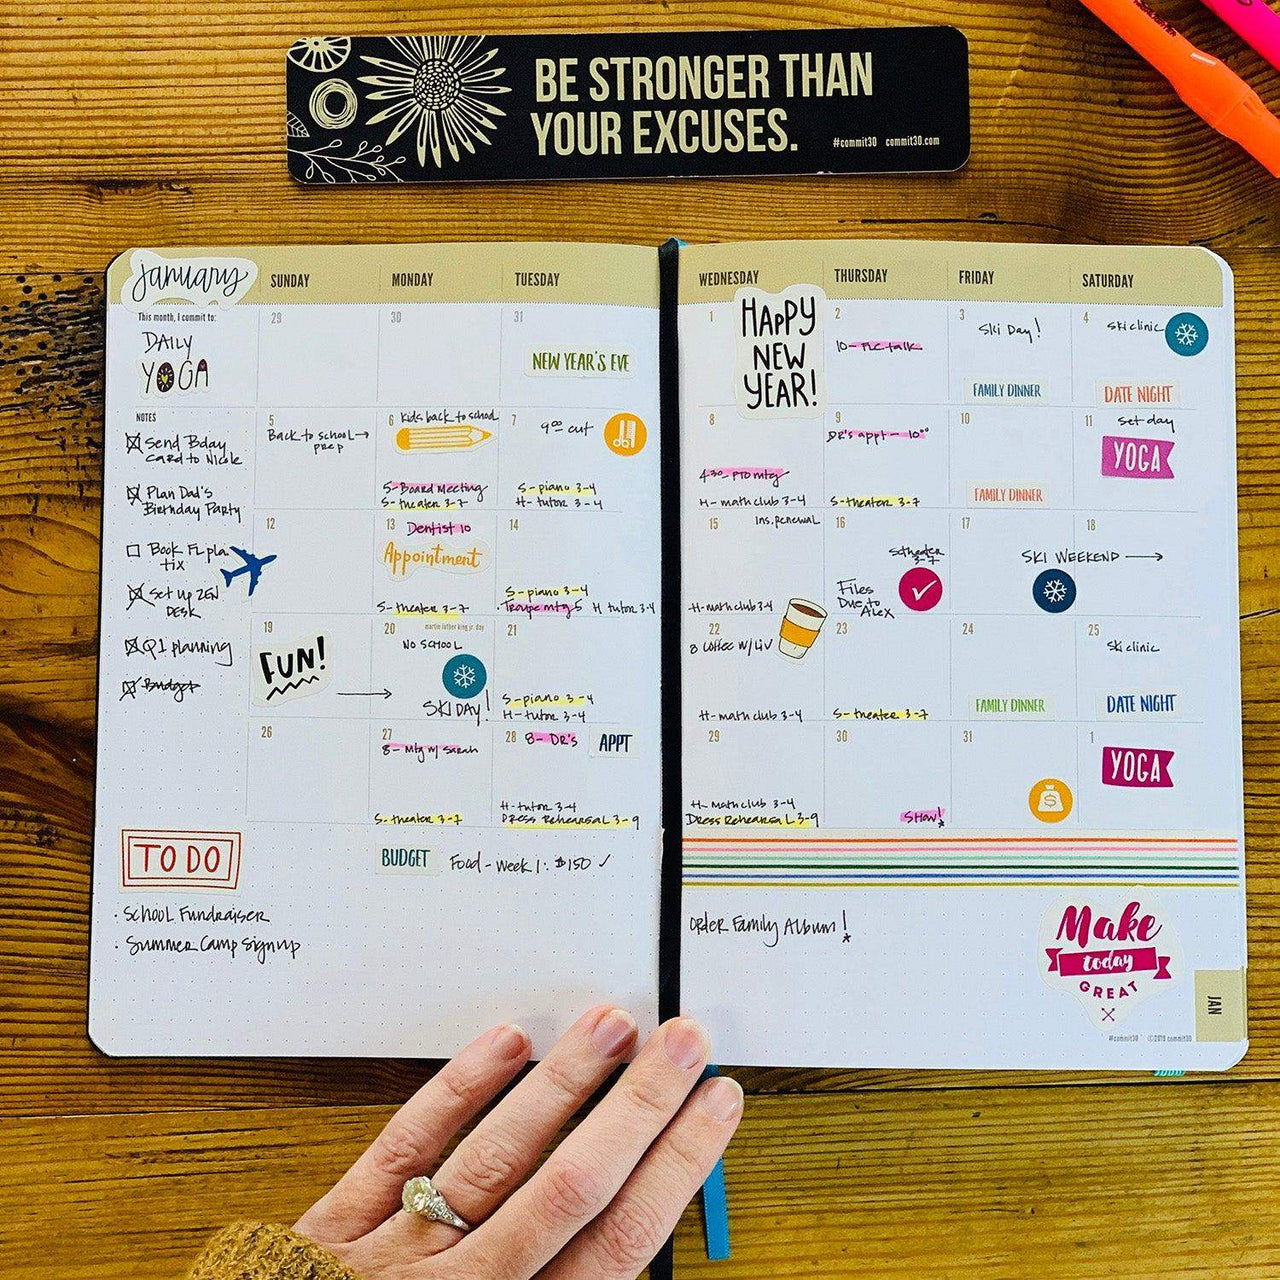 BE STRONGER THAN
YOUR EXCUSES.
#commit30 commit30.com
january
SUNDAY
MONDAY
TUESDAY
WEDNESDAY
THURSDAY
FRIDAY
SATURDAY
This month, I commit to:
DAILY
YOGA
29
30
31
NEW YEAR'S EVE
1
HAPPY
NEW
YEAR!
2
10-
talk
3
Ski Day!
FAMILY DINNER
4
Ski clinic
DATE NIGHT
NOTES
Send Bday
card to Nicole
Plan Dad's
Birthday Party
Book FL pla
tix
Set up ZEN
DESK
Q1 planning
Budget
5
Back to school→
prep
6
Kids back to school
S-Board Meeting
S-theater 3-7
7
9:00 cut
S-piano 3-4
H-tutor 3-4
8
4:30 PTO mtg
H-math club 3-4
9
DR's appt - 10:00
S-theater 3-7
10
FAMILY DINNER
11
Set day
YOGA
12
13
Dentist 10
Appointment
S-theater 3-7
14
S-piano 3-4
Troupe mtg 5
H tutor 3-4
15
Ins. renewal
H-math club 3-4
16
S theater
3-7
Files
Due to
Alex
17
SKI WEEKEND →
18
19
FUN!
20
martin luther king jr. day
NO SCHOOL
SKI DAY!
21
S-piano 3-4
H-tutor 3-4
22
8 coffee w/ Liv
H-math club 3-4
23
S-theater 3-7
24
FAMILY DINNER
25
Ski clinic
DATE NIGHT
26
27
8-Mtg w/ Sarah
S-theater 3-7
28
8-DR's
APPT
H-tutor 3-4
DRESS REHEARSAL 3-9
29
H-math club 3-4
DRESS REHEARSAL 3-9
30
SHOW!
31
$
1
YOGA
TO DO
BUDGET
Food-Week 1: $150 ✓
· School Fundraiser
· Summer Camp Sign up
Order Family Album!
Make
today
GREAT
JAN
#commit30 ©2019 commit30